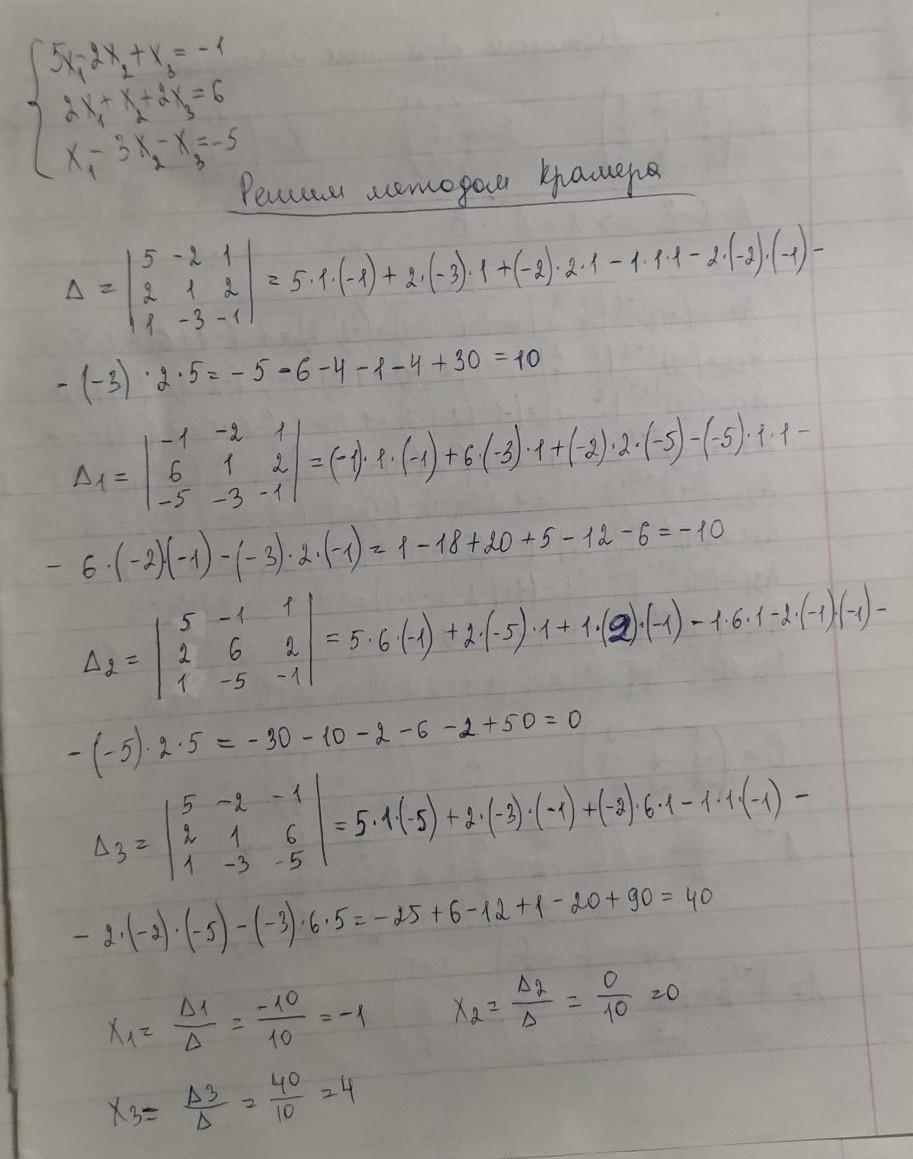 5x₁-2x₂+x₃=-1
2x₁+x₂+2x₃=6
x₁-3x₂-x₃=-5
Решим методом Крамера
Δ = |5 -2 1; 2 1 2; 1 -3 -1| = 5·1·(-1)+2·(-3)·1+(-2)·2·1-1·1·1-2·(-2)·(-1)-
-(-3)·2·5=-5-6-4-1-4+30=10
Δ1= |-1 -2 1; 6 1 2; -5 -3 -1| =(-1)·1·(-1)+6·(-3)·1+(-2)·2·(-5)-(-5)·1·1-
- 6·(-2)(-1)-(-3)·2·(-1)=1-18+20+5-12-6=-10
Δ2= |5 -1 1; 2 6 2; 1 -5 -1| =5·6·(-1)+2·(-5)·1+1·(2)·(-1)-1·6·1-2·(-1)·(-1)-
-(-5)·2·5=-30-10-2-6-2+50=0
Δ3= |5 -2 -1; 2 1 6; 1 -3 -5| =5·1·(-5)+2·(-3)·(-1)+(-2)·6·1-1·1·(-1)-
- 2·(-2)·(-5)-(-3)·6·5=-25+6-12+1-20+90=40
x₁= Δ1/Δ = -10/10 =-1 x₂= Δ2/Δ = 0/10 =0
x3= Δ3/Δ = 40/10 =4